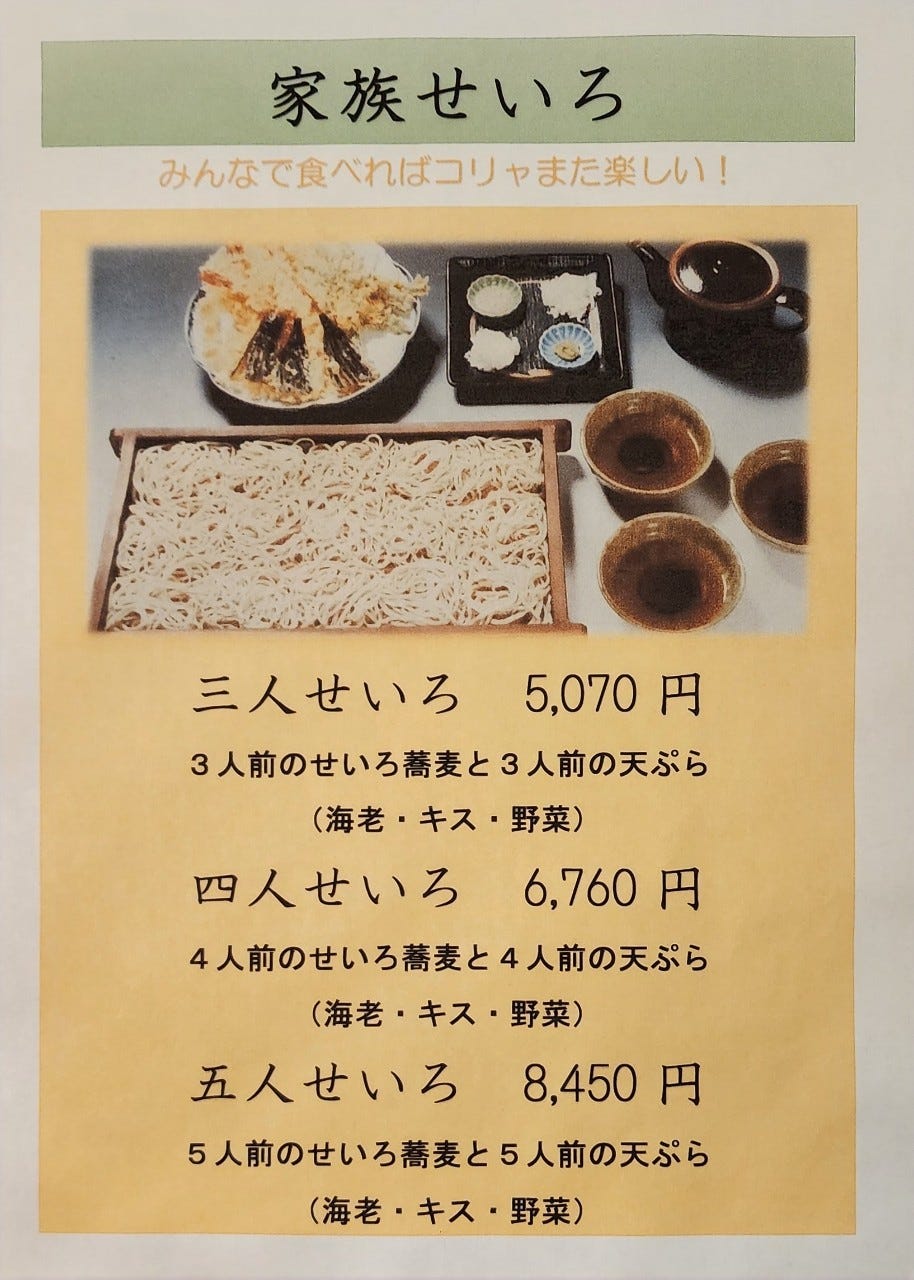 家族せいろ
みんなで食べればコリャまた楽しい！
三人せいろ　5,070 円
３人前のせいろ蕎麦と３人前の天ぷら
（海老・キス・野菜）
四人せいろ　6,760 円
４人前のせいろ蕎麦と４人前の天ぷら
（海老・キス・野菜）
五人せいろ　8,450 円
５人前のせいろ蕎麦と５人前の天ぷら
（海老・キス・野菜）